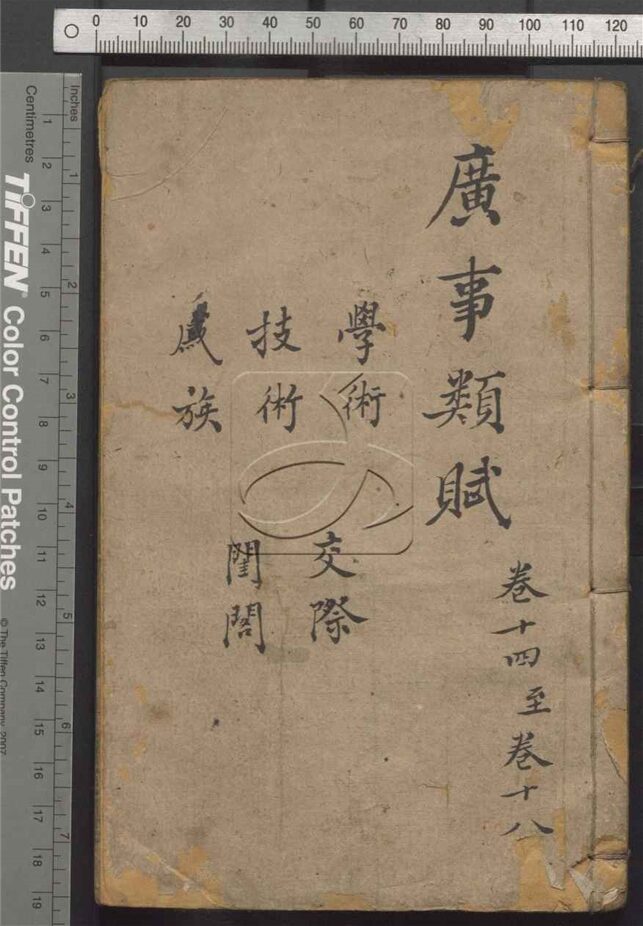 廣事類賦
卷十四至卷十八
學術
交際
技術
閨閣
族
0 10 20 30 40 50 60 70 80 90 100 110 120
inches
1 2 3 4 5 6 7
Centimetres
1 2 3 4 5 6 7 8 9 10 11 12 13 14 15 16 17 18 19
TIFFEN® Color Control Patches
© The Tiffen Company, 2007